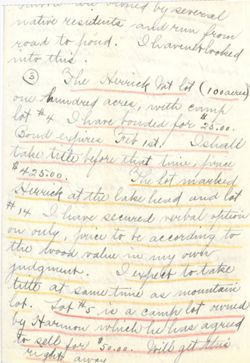 are owned by several
native residents and run from
road to pond. I havent looked
into this.
③ The Herrick Mt lot (100 acres)
one hundred acres, with camp
lot #4 I have bonded for $25.00.
Bond expires Feb 1st. I shall
take title before that time, price
$425.00. The lot marked
Herrick at the lake head and lot
#14 I have secured verbal option
on only, price to be according to
the wood value in my own
judgment. I expect to take
title at same time as mountain
lot. Lot #5 is a camp lot owned
by Harmon which he has agreed
to sell for $50.00. Will get this
right away